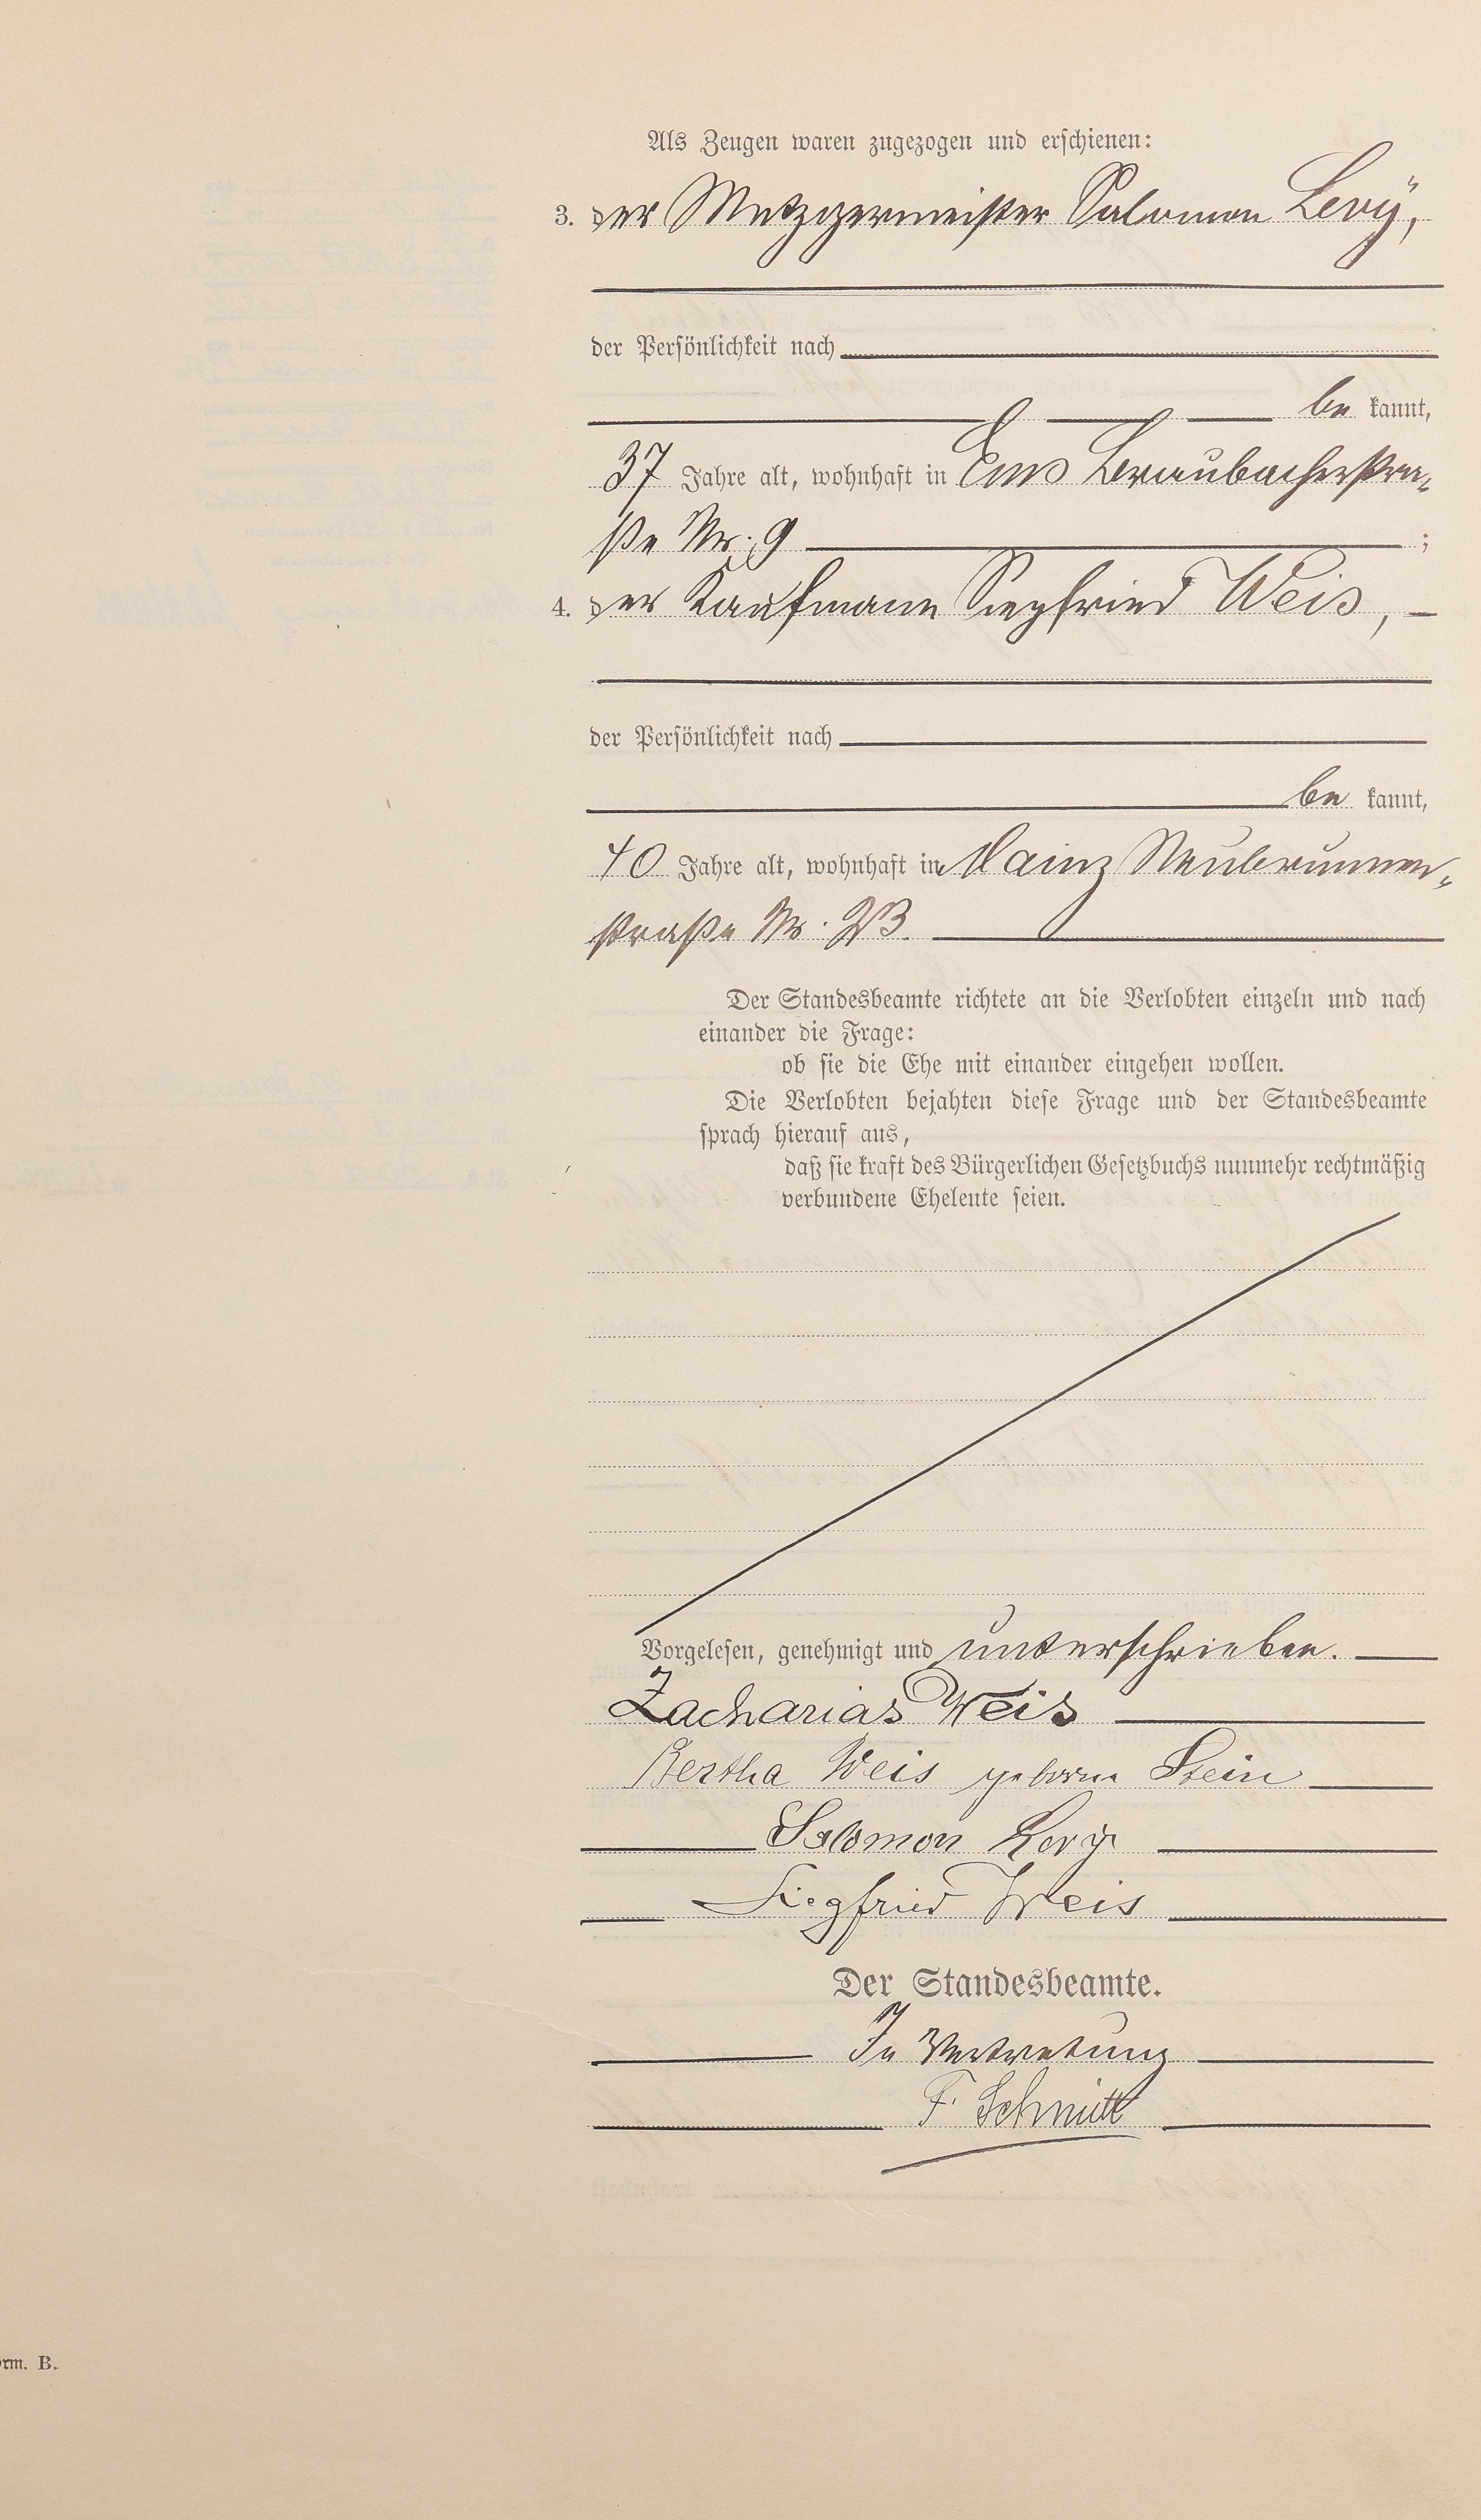 Als Zeugen waren zugezogen und erschienen:
3. der Metzgermeister Salomon Levÿ,
der Persönlichkeit nach
be kannt,
37 Jahre alt, wohnhaft in Ems Braubacherstra-
ße Nr. 9 ;
4. der Kaufmann Siegfried Weis,
der Persönlichkeit nach
be kannt,
40 Jahre alt, wohnhaft in Mainz Neubrunnen-
straße Nr. 23
Der Standesbeamte richtete an die Verlobten einzeln und nach
einander die Frage:
ob sie die Ehe mit einander eingehen wollen.
Die Verlobten bejahten diese Frage und der Standesbeamte
sprach hierauf aus,
daß sie kraft des Bürgerlichen Gesetzbuchs nunmehr rechtmäßig
verbundene Eheleute seien.
Vorgelesen, genehmigt und unterschrieben.
Zacharias Weis
Bertha Weis geborne Stein
Salomon Levy
Siegfried Weis
Der Standesbeamte.
In Vertretung
F. Schmitt
orm. B.